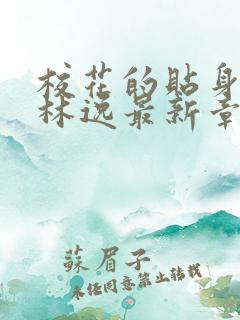 校花的贴身
林逸最新章
蘇眉子
未經同意禁止轉載